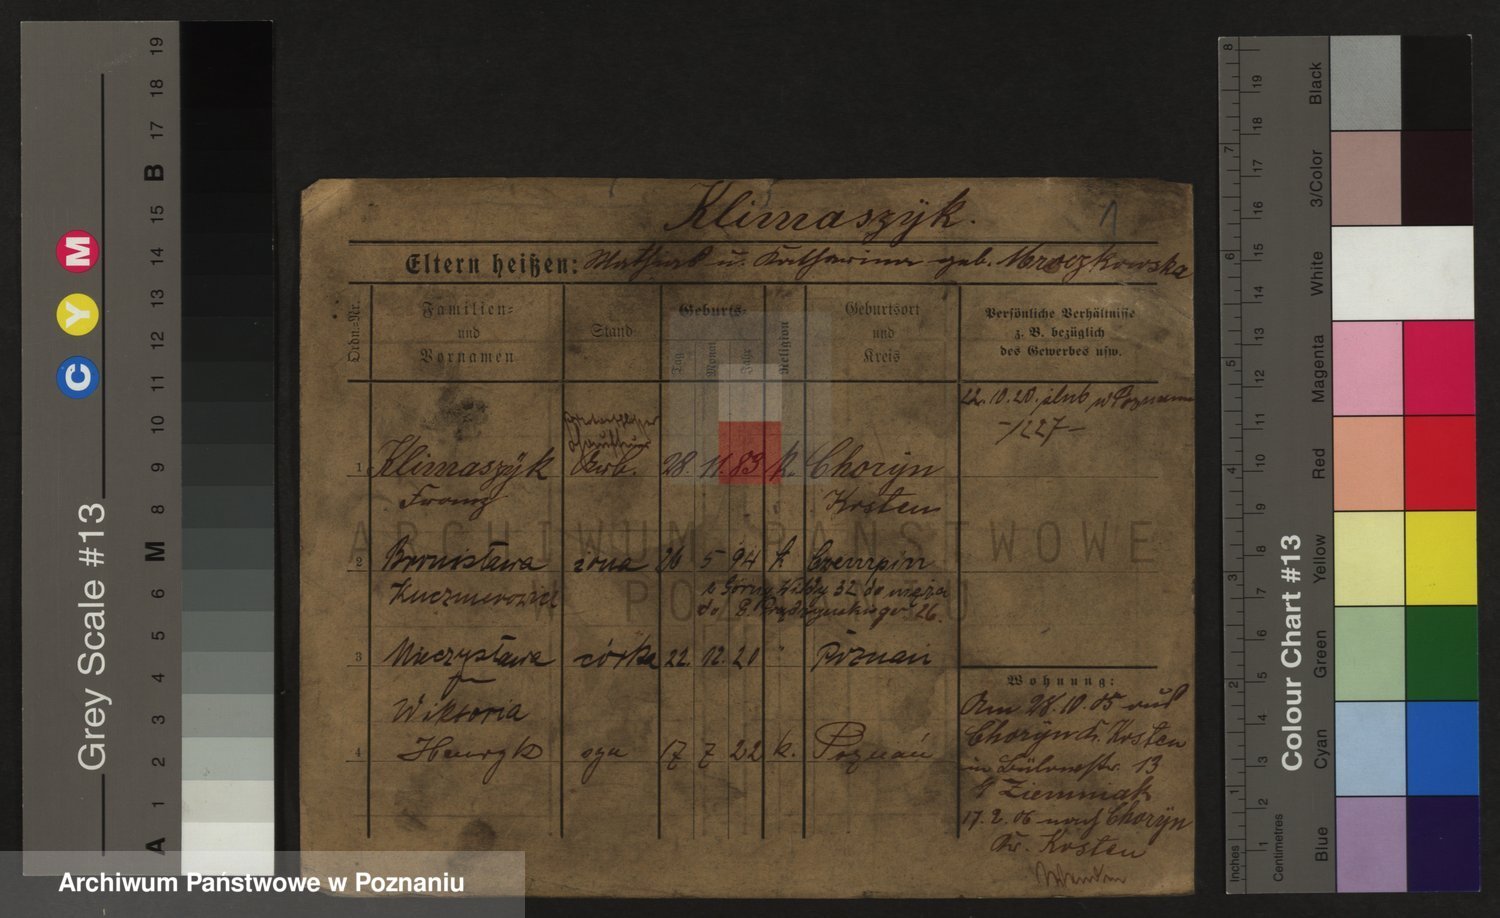 Klimaszÿk. 1
Eltern heißen: Mathias u. Katharina geb. Mroczkowska
Ordn.-Nr.
Familien-
und
Vornamen
Stand
Geburts-
Tag
Monat
Jahr
Religion
Geburtsort
und
Kreis
Persönliche Verhältnisse
z. B. bezüglich
des Gewerbes usw.
22. 10. 20. ślub w Poznaniu
-/227-
1 Klimaszÿk Arb. 28. 11. 83 k. Chorÿn
Franz Kosten
2 Bronisława żona 26 5 94 k Czempiń
Kuczmerowicz
z Górnej Wildy 32 do męża
do 26.
3 Mieczysława córka 22. 12. 20 " Poznań
Wiktoria
4 Henryk syn 17 7 22 k. Poznań
Wohnung:
Am 28. 10. 05 aus
Chorÿn Kr. Kosten
in Bülowstr. 13
b Ziemniak
17. 2. 06 nach Chorÿn
Kr. Kosten
ARCHIWUM PAŃSTWOWE
W POZNANIU
Archiwum Państwowe w Poznaniu
Grey Scale #13
C Y M
A 1 2 3 4 5 6 M 8 9 10 11 12 13 14 15 B 17 18 19
Colour Chart #13
Blue
Cyan
Green
Yellow
Red
Magenta
White
3/Color
Black
Inches 1 2 3 4 5 6 7 8
Centimetres 1 2 3 4 5 6 7 8 9 10 11 12 13 14 15 16 17 18 19